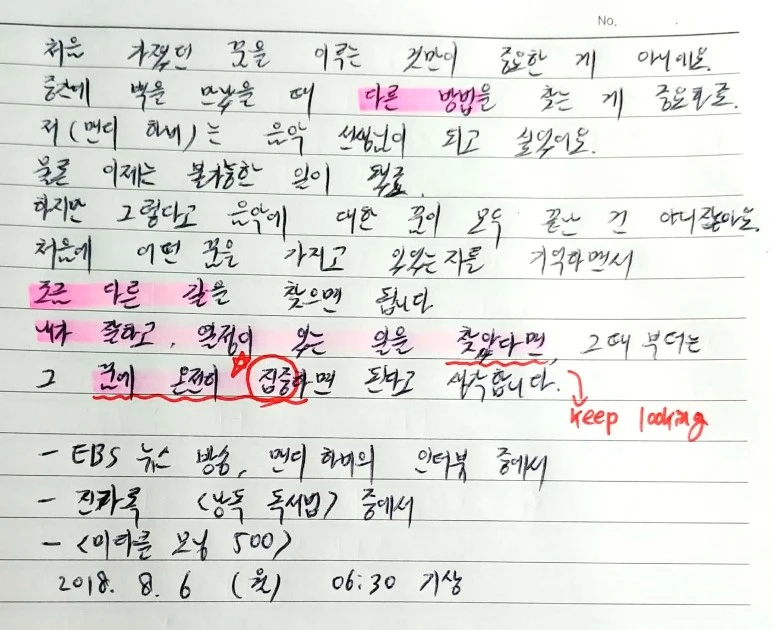 No.
처음 가졌던 꿈을 이루는 것만이 중요한 게 아니에요.
중간에 벽을 만났을 때 다른 방법을 찾는 게 중요하죠.
저(맨디 하비)는 음악 선생님이 되고 싶었어요.
물론 이제는 불가능한 일이 됐죠.
하지만 그렇다고 음악에 대한 꿈이 모두 끝난 건 아니잖아요.
처음에 어떤 꿈을 가지고 있었는지를 기억하면서
조금 다른 길을 찾으면 됩니다.
내가 잘하고, 열정이 있는 일을 찾았다면, 그때 부터는
그 꿈에 온전히 집중하면 된다고 생각합니다.
keep looking
- EBS 뉴스 방송, 맨디 하비의 인터뷰 중에서
- 진가록 <낭독 독서법> 중에서
- <미라클 모닝 500>
2018. 8. 6 (월) 06:30 기상